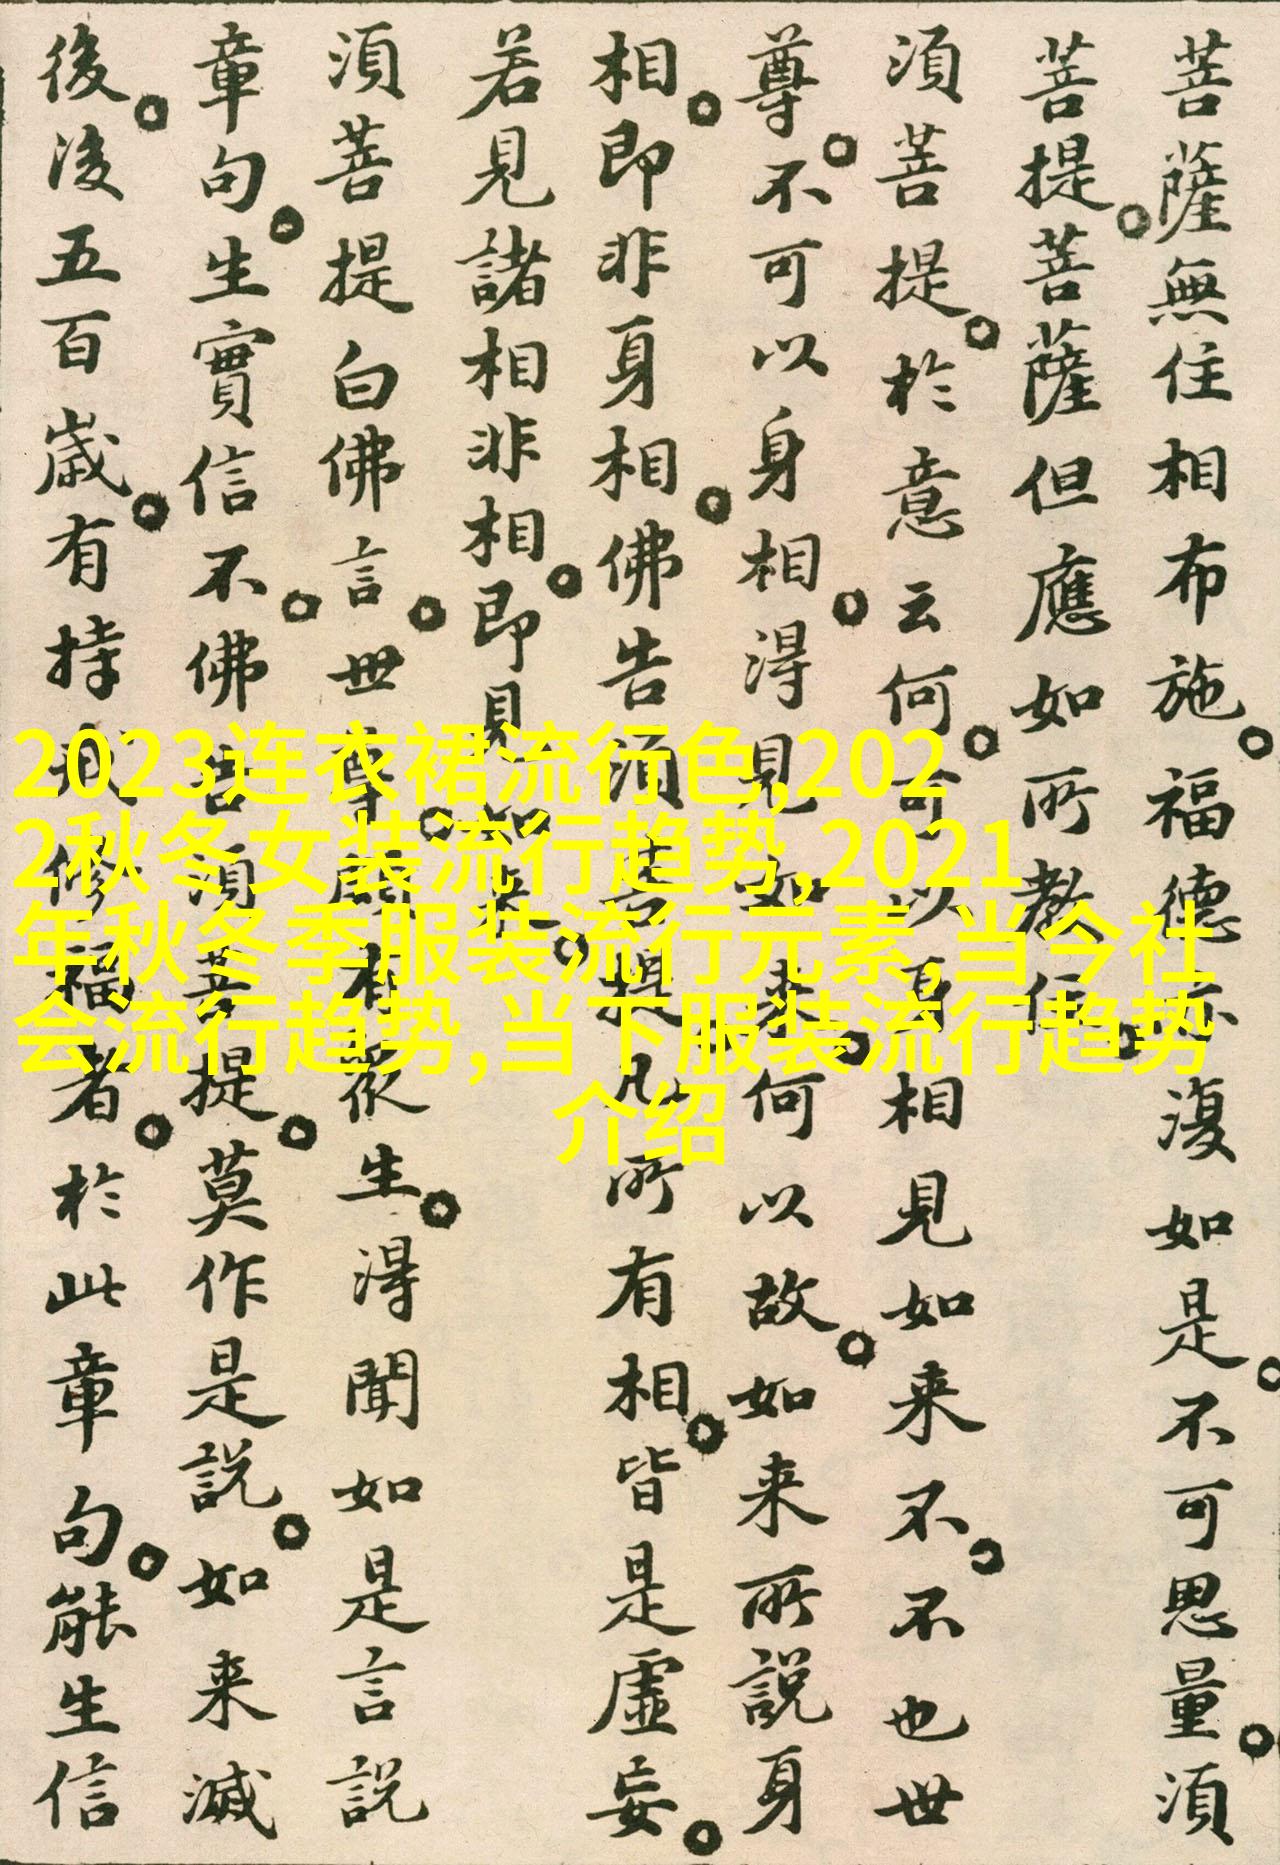 菩薩無住相布施。福德亦復如是。不可思量。須
菩提。菩薩但應如所教住。
須菩提。於意云何。可以身相見如来不。不也世
尊。不可以身相。得見如来。何以故。如来所説身
相。即非身相。佛告須菩提。凡所有相。皆是虛妄。
若見諸相非相。即見如来。
須菩提白佛言。世尊。頗有衆生。得聞如是言説
章句。生實信不。佛告須菩提。莫作是説。如来滅
後。後五百歲。有持戒修福者。於此章句。能生信
2023连衣裙流行色,202
2秋冬女装流行趋势,2021
年秋冬季服装流行元素,当今社
会流行趋势,当下服装流行趋势
介绍